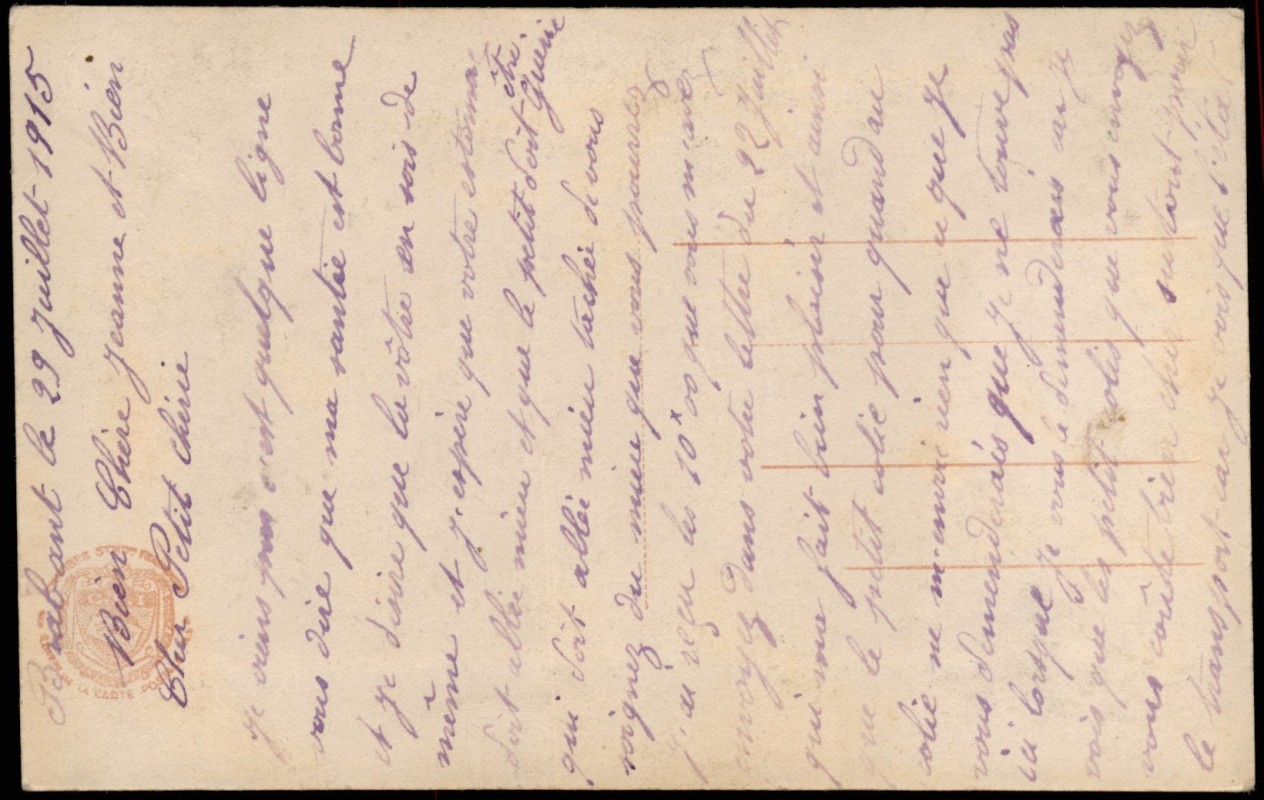 Brabant le 29 Juillet 1915
Bien Chère Jeanne et Bien
Cher Petit chérie
Je viens par cest quelque ligne
vous dire que ma santée est bonne
et je désire que la vôtre en sois de
même et j'espère que votre estomac
doit allée mieu et que le petit doit être
Guérie
qui doit allée mieu tachée de vous
soignez du mieu que vous pourrez
j'ai reçu les 10 x 00 que vous m'avez
envoyez dans votre lettre du 22 Juillet
qui ma fait bien plaisir et aussi
que le petit colie pour quand au
colie ne m'envoi rien que ce que je
vous demenderais que je ne trouve pas
ici lorsque je vous le demenderais car je
vois que les petit colis que vous envoyez
vous coûte bien cher surtout pour
le transport car je vois que c'était
LA CARTE